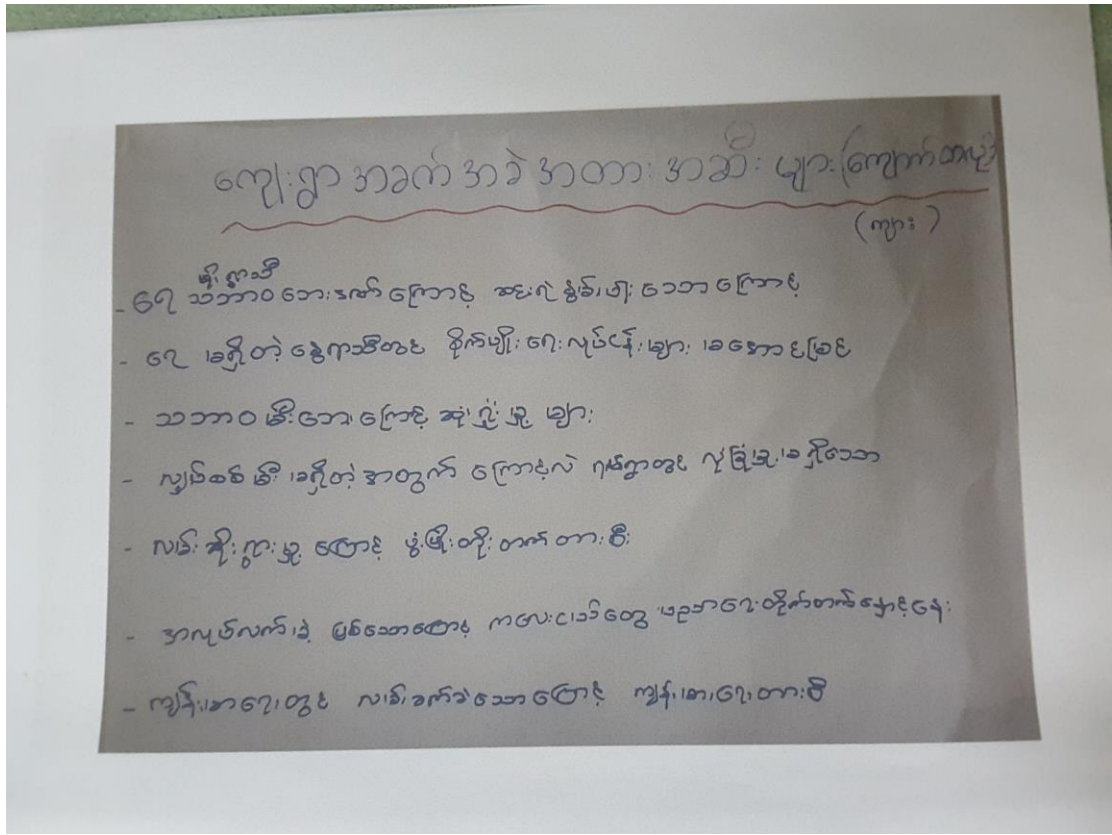 ကျေးရွာအခက်အခဲအတားအဆီးများ (ကျောက်တလုံး)
(ကျား)
မိုးရာသီ
- ရေ သဘာဝဘေးဒဏ်ကြောင့် ဆင်းရဲနွမ်းပါးသောကြောင့်
- ရေ မရှိတဲ့ နွေရာသီတွင် စိုက်ပျိုးရေးလုပ်ငန်းများ မအောင်မြင်
- သဘာဝမီးဘေးကြောင့် ဆုံးရှုံးမှု့များ
- လျှပ်စစ်မီး မရှိတဲ့အတွက်ကြောင့်လဲ ရပ်ရွာတွင် လုံခြုံမှု့မရှိသော
- လမ်းဆိုးရွားမှု့ကြောင့် ဖွံ့ဖြိုးတိုးတက်တားဆီး
- အလုပ်လက်မဲ့ ဖြစ်သောကြောင့် ကလေးငယ်တွေ ပညာရေးတိုက်တက်နှောင့်နှေး
- ကျန်းမာရေးတွင် လမ်းခက်ခဲသောကြောင့် ကျန်းမာရေးတားဆီး